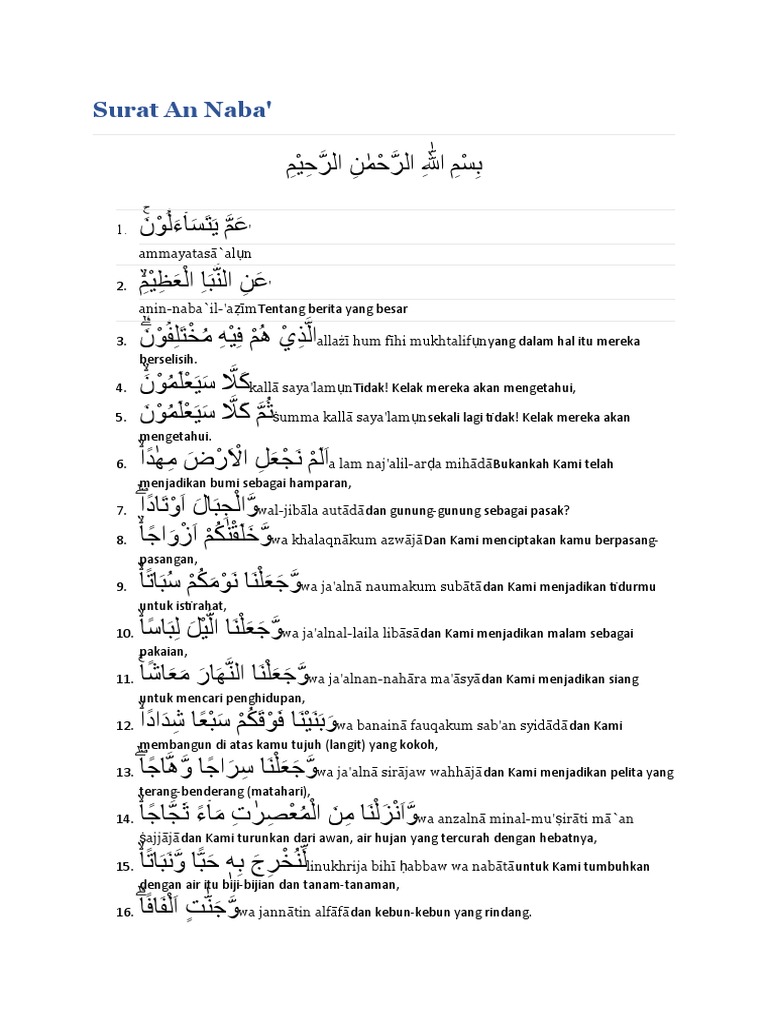 Surat An Naba'
بِسْمِ اللّٰهِ الرَّحْمٰنِ الرَّحِيْمِ
1. عَمَّ يَتَسَاۤءَلُوْنَۚ
ammayatasā`alụn
2. عَنِ النَّبَاِ الْعَظِيْمِۙ
anin-naba`il-'aẓīmTentang berita yang besar
3. الَّذِيْ هُمْ فِيْهِ مُخْتَلِفُوْنَۗallażī hum fīhi mukhtalifụnyang dalam hal itu mereka
berselisih.
4. كَلَّا سَيَعْلَمُوْنَۙkallā saya'lamụnTidak! Kelak mereka akan mengetahui,
5. ثُمَّ كَلَّا سَيَعْلَمُوْنَṡumma kallā saya'lamụnsekali lagi tidak! Kelak mereka akan
mengetahui.
6. اَلَمْ نَجْعَلِ الْاَرْضَ مِهٰدًاۙa lam naj'alil-arḍa mihādāBukankah Kami telah
menjadikan bumi sebagai hamparan,
7. وَّالْجِبَالَ اَوْتَادًاۖwal-jibāla autādādan gunung-gunung sebagai pasak?
8. وَّخَلَقْنٰكُمْ اَزْوَاجًاۙwa khalaqnākum azwājāDan Kami menciptakan kamu berpasang-
pasangan,
9. وَّجَعَلْنَا نَوْمَكُمْ سُبَاتًاۙwa ja'alnā naumakum subātādan Kami menjadikan tidurmu
untuk istirahat,
10. وَّجَعَلْنَا الَّيْلَ لِبَاسًاۙwa ja'alnal-laila libāsādan Kami menjadikan malam sebagai
pakaian,
11. وَّجَعَلْنَا النَّهَارَ مَعَاشًاۚwa ja'alnan-nahāra ma'āsyādan Kami menjadikan siang
untuk mencari penghidupan,
12. وَبَنَيْنَا فَوْقَكُمْ سَبْعًا شِدَادًاۙwa banainā fauqakum sab'an syidādādan Kami
membangun di atas kamu tujuh (langit) yang kokoh,
13. وَّجَعَلْنَا سِرَاجًا وَّهَّاجًاۖwa ja'alnā sirājaw wahhājādan Kami menjadikan pelita yang
terang-benderang (matahari),
14. وَّاَنْزَلْنَا مِنَ الْمُعْصِرٰتِ مَاۤءً ثَجَّاجًاۙwa anzalnā minal-mu'ṣirāti mā`an
ṡajjājādan Kami turunkan dari awan, air hujan yang tercurah dengan hebatnya,
15. لِّنُخْرِجَ بِهٖ حَبًّا وَّنَبَاتًاۙlinukhrija bihī ḥabbaw wa nabātāuntuk Kami tumbuhkan
dengan air itu biji-bijian dan tanam-tanaman,
16. وَّجَنّٰتٍ اَلْفَافًاۗwa jannātin alfāfādan kebun-kebun yang rindang.